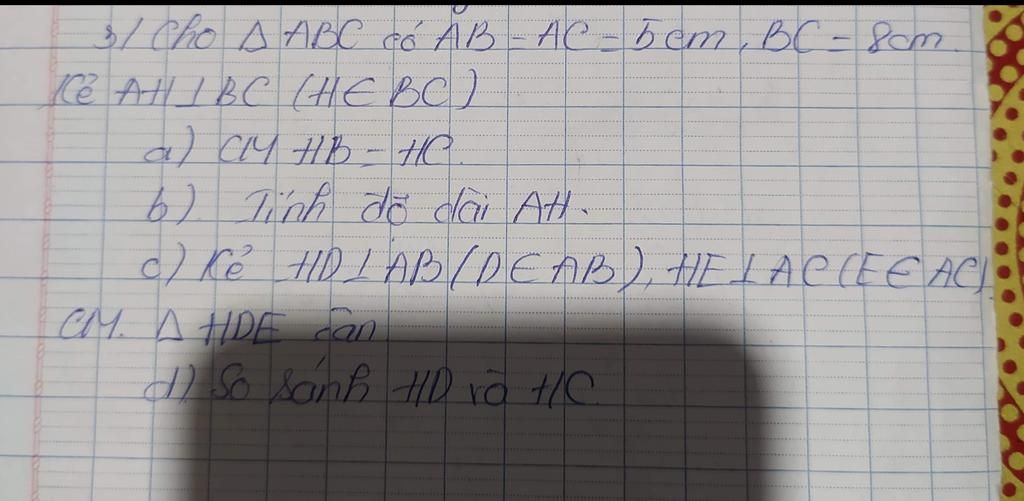 3/ Cho Δ ABC có AB = AC = 5cm, BC = 8cm.
Kẻ AH⊥BC (H∈BC)
a) CM HB = HC.
b) Tính độ dài AH.
c) Kẻ HD⊥AB(D∈AB), HE⊥AC(E∈AC).
CM. Δ HDE cân
d) So sánh HD và HC